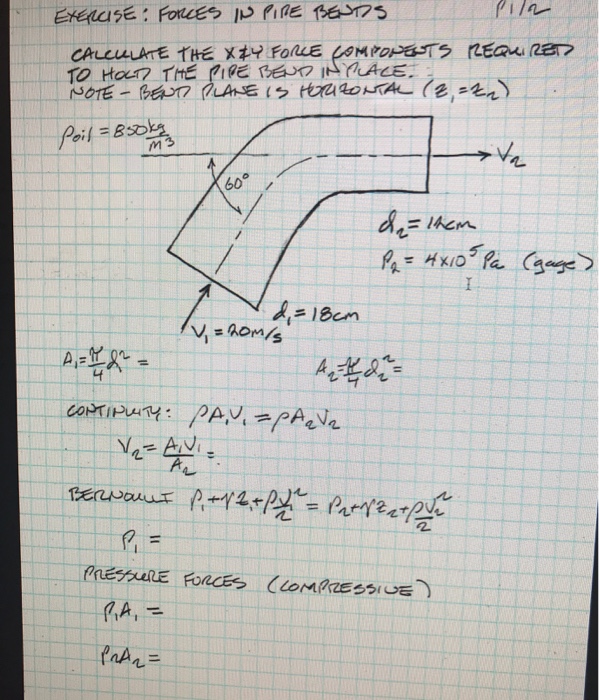 EXERCISE: FORCES IN PIPE BENDS P1/2
CALCULATE THE X&Y FORCE COMPONENTS REQUIRED
TO HOLD THE PIPE BEND IN PLACE.
NOTE - BEND PLANE IS HORIZONTAL (Z₁=Z₂)
ρoil = 850 kg/m3
60°
V₂
d₂ = 12cm
P₂ = 4x10⁵ Pa (gage)
d₁ = 18cm
V₁ = 20m/s
A₁ = π/4 d² = A₂ = π/4 d₂² =
CONTINUITY: ρA₁V₁ = ρA₂V₂
V₂ = A₁V₁/A₂ =
BERNOULLI P₁+γZ₁+ρV₁²/2 = P₂+γZ₂+ρV₂²/2
P₁ =
PRESSURE FORCES (COMPRESSIVE)
P₁A₁ =
P₂A₂ =